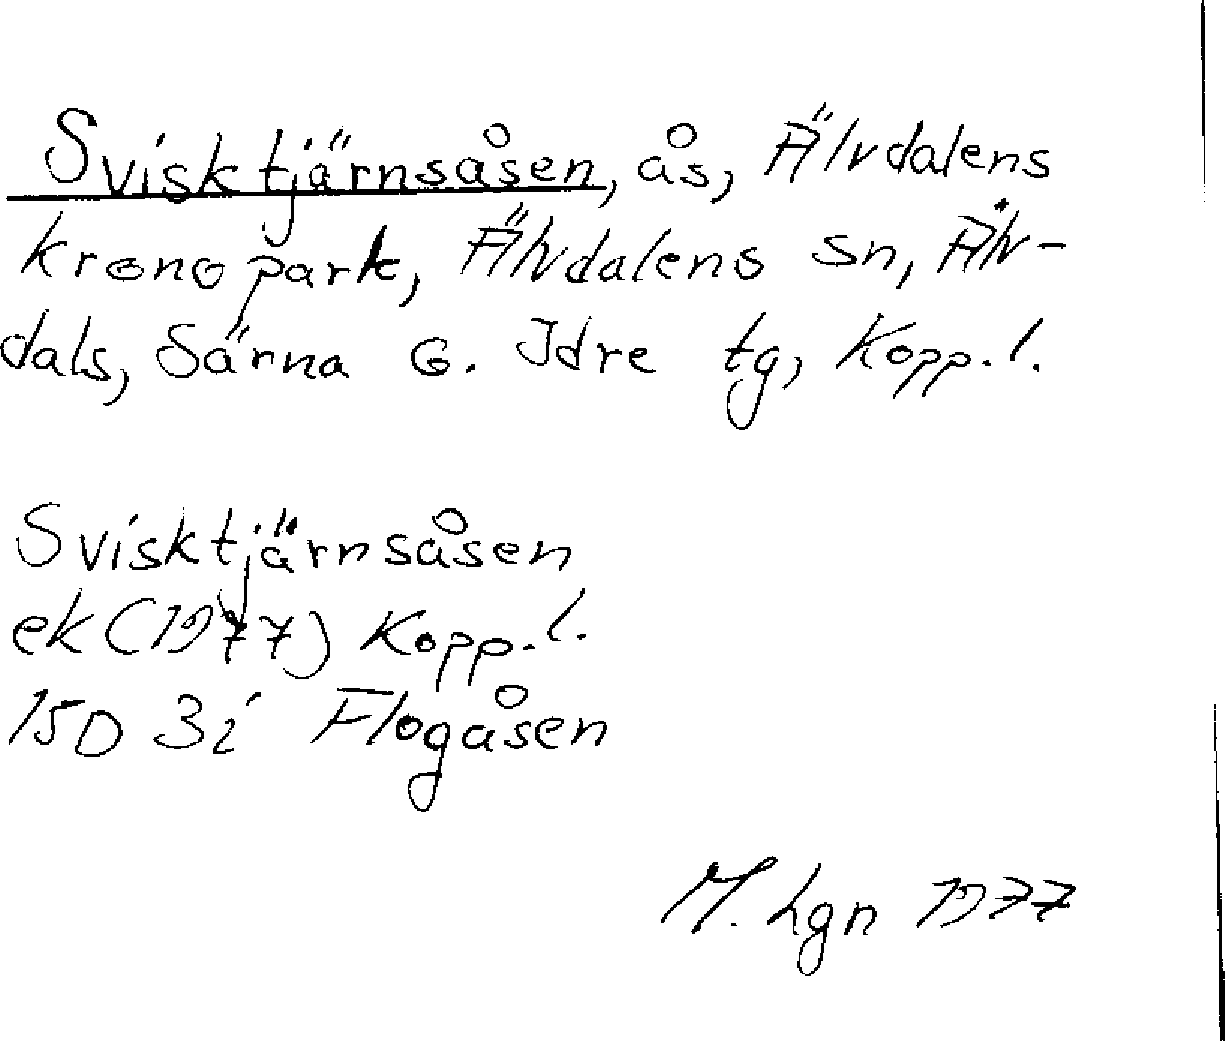 Svisktjärnsåsen, ås, Älvdalens
kronopark, Älvdalens sn, Älv-
dals, Särna o. Idre tg, Kopp. l.
Svisktjärnsåsen
ek (1977) Kopp. l.
15D 3i Flogåsen
M. Lgn 1977